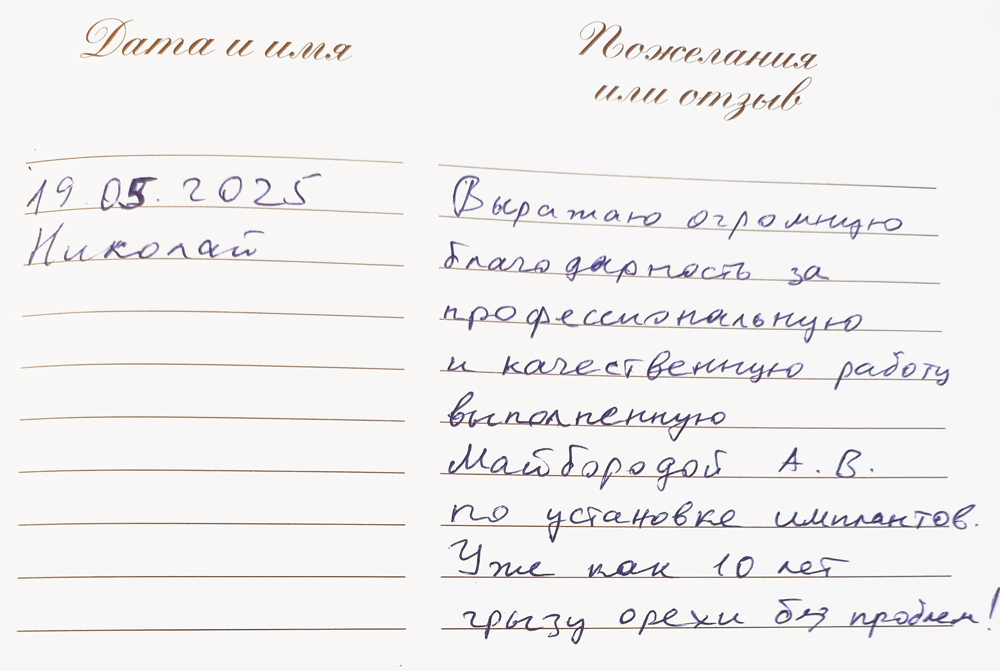 Дата и имя
Пожелания
или отзыв
19.05.2025
Николай
Выражаю огромную
благодарность за
профессиональную
и качественную работу
выполненную
Майбородой А.В.
по установке имплантов.
Уже как 10 лет
грызу орехи без проблем!